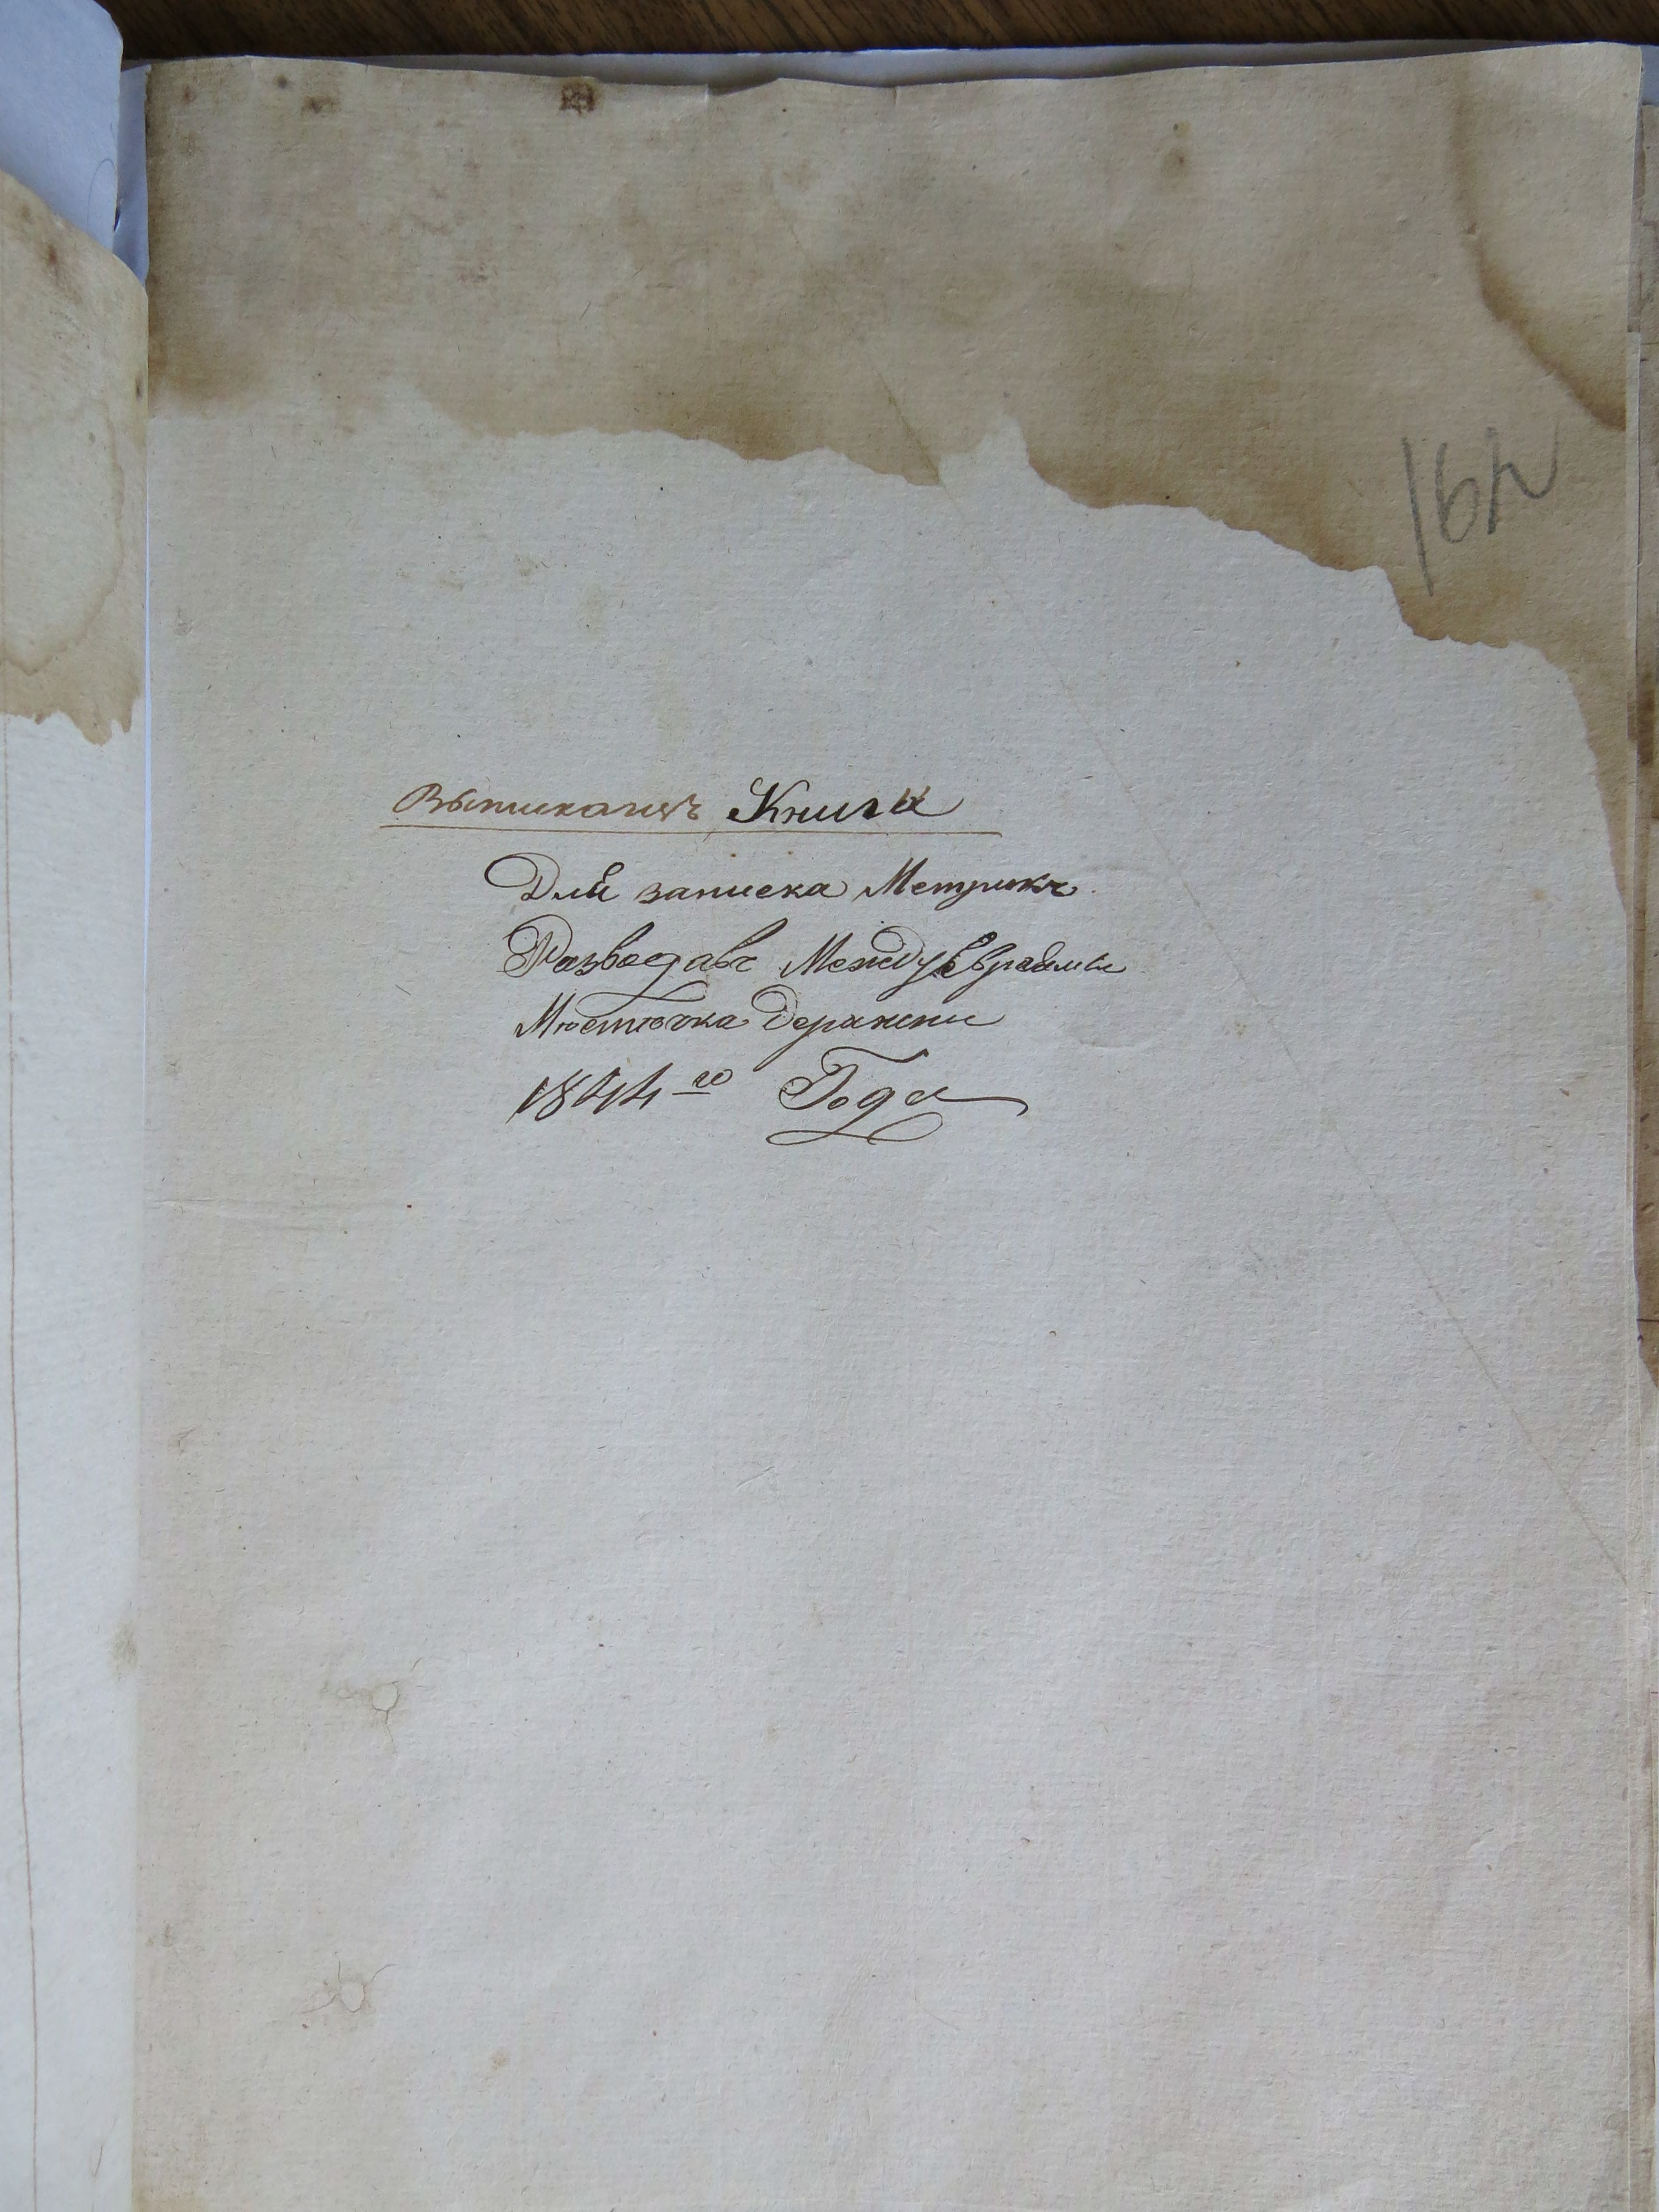 164
Выписка изъ Книга
Для записка Метрикъ
Разводавъ Между Евраями
Мѣстѣчка Деражни
1844го Года